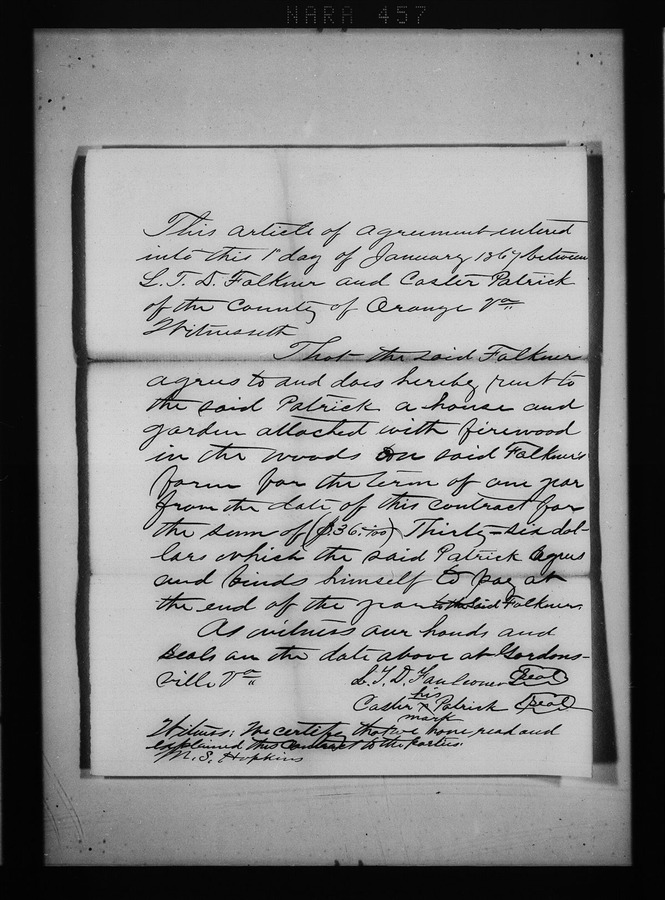 NARA 457
This article of agreement entered
into this 1st day of January 1867 between
L. T. D. Falkner and Caster Patrick
of the County of Orange Va
Witnesseth
That the said Falkner
agrees to and does hereby rent to
the said Patrick a house and
garden attached with firewood
in the woods on said Falkner's
farm for the term of one year
from the date of this contract for
the sum of ($36.00) Thirty-six dol-
lars which the said Patrick agrees
and binds himself to pay at
the end of the year to the said Falkner.
As witness our hands and
seals on the date above at Gordons-
ville Va
L. T. D. Faulconer Seal
his
Caster x Patrick Seal
mark
Witness: We certify that we have read and
explained this contract to the parties.
M. S. Hopkins